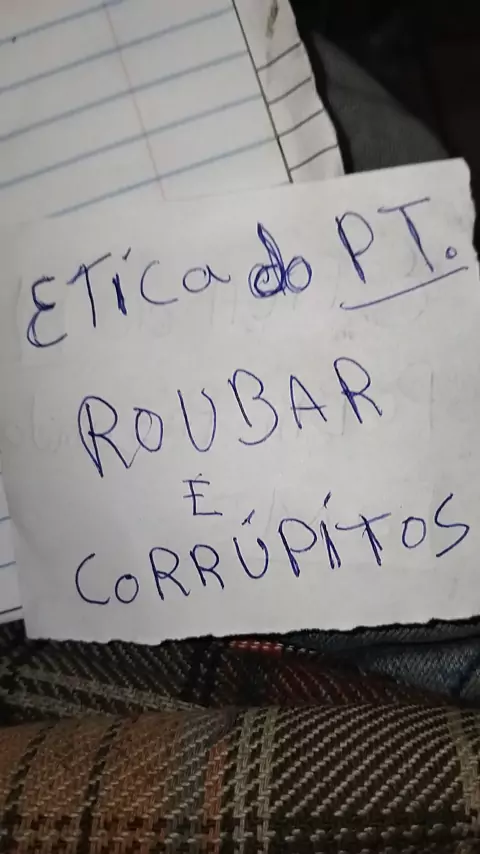 ETICA do PT.
ROUBAR
E
CORRÚPÍTOS